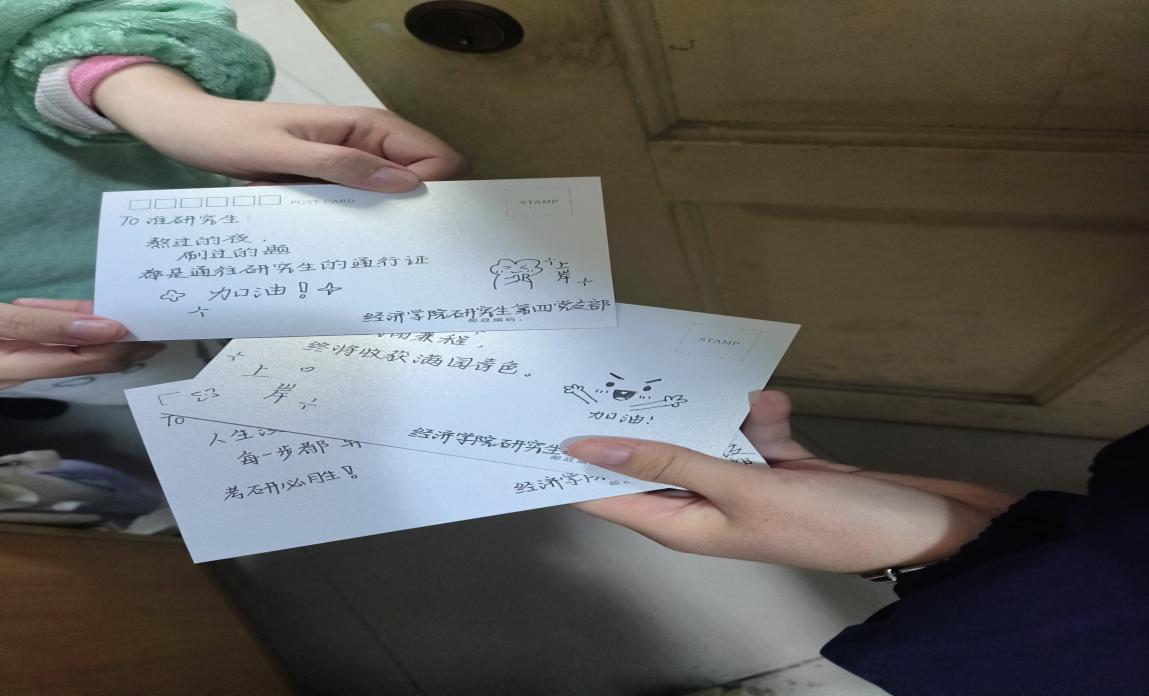 POST CARD
STAMP
TO 准研究生:
熬过的夜,
刷过的题
都是通往研究生的通行证
加油!
上岸
经济学院研究生第四党支部
邮政编码:
STAMP
兼程,
终将收获满园春色。
上岸
加油!
经济学院研究生
TO
人生没
每一步都
考研必胜!
经济学院